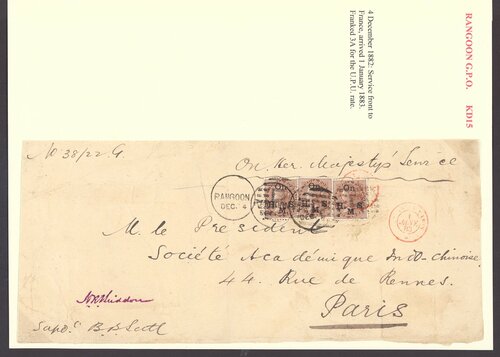 RANGOON G.P.O. KD15
4 December 1882: Service front to
France, arrived 1 January 1883.
Franked 3A for the U.P.U. rate.
No 38/22. G.
On Her Majesty's Service
RANGOON
DEC. 4
On On On
H S M
M. le President
Société Académique Indo-Chinoise
44. Rue de Rennes.
Paris